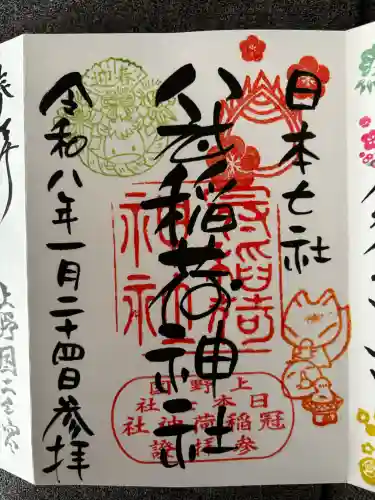 日本七社
冠稲荷神社
令和八年一月二十四日参拝
迎春
冠稲荷神社
上野国
日本七社
冠稲荷神社
参拝證
奉拝
上野国二之宮